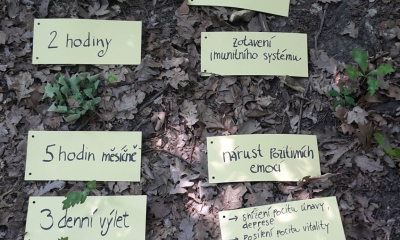 2 hodiny
zotavení
imunitního systému
5 hodin měsíčně
nárust pozitivních
emocí
3 denní výlet
→ snížení pocitu únavy,
deprese
→ posílení pocitu vitality